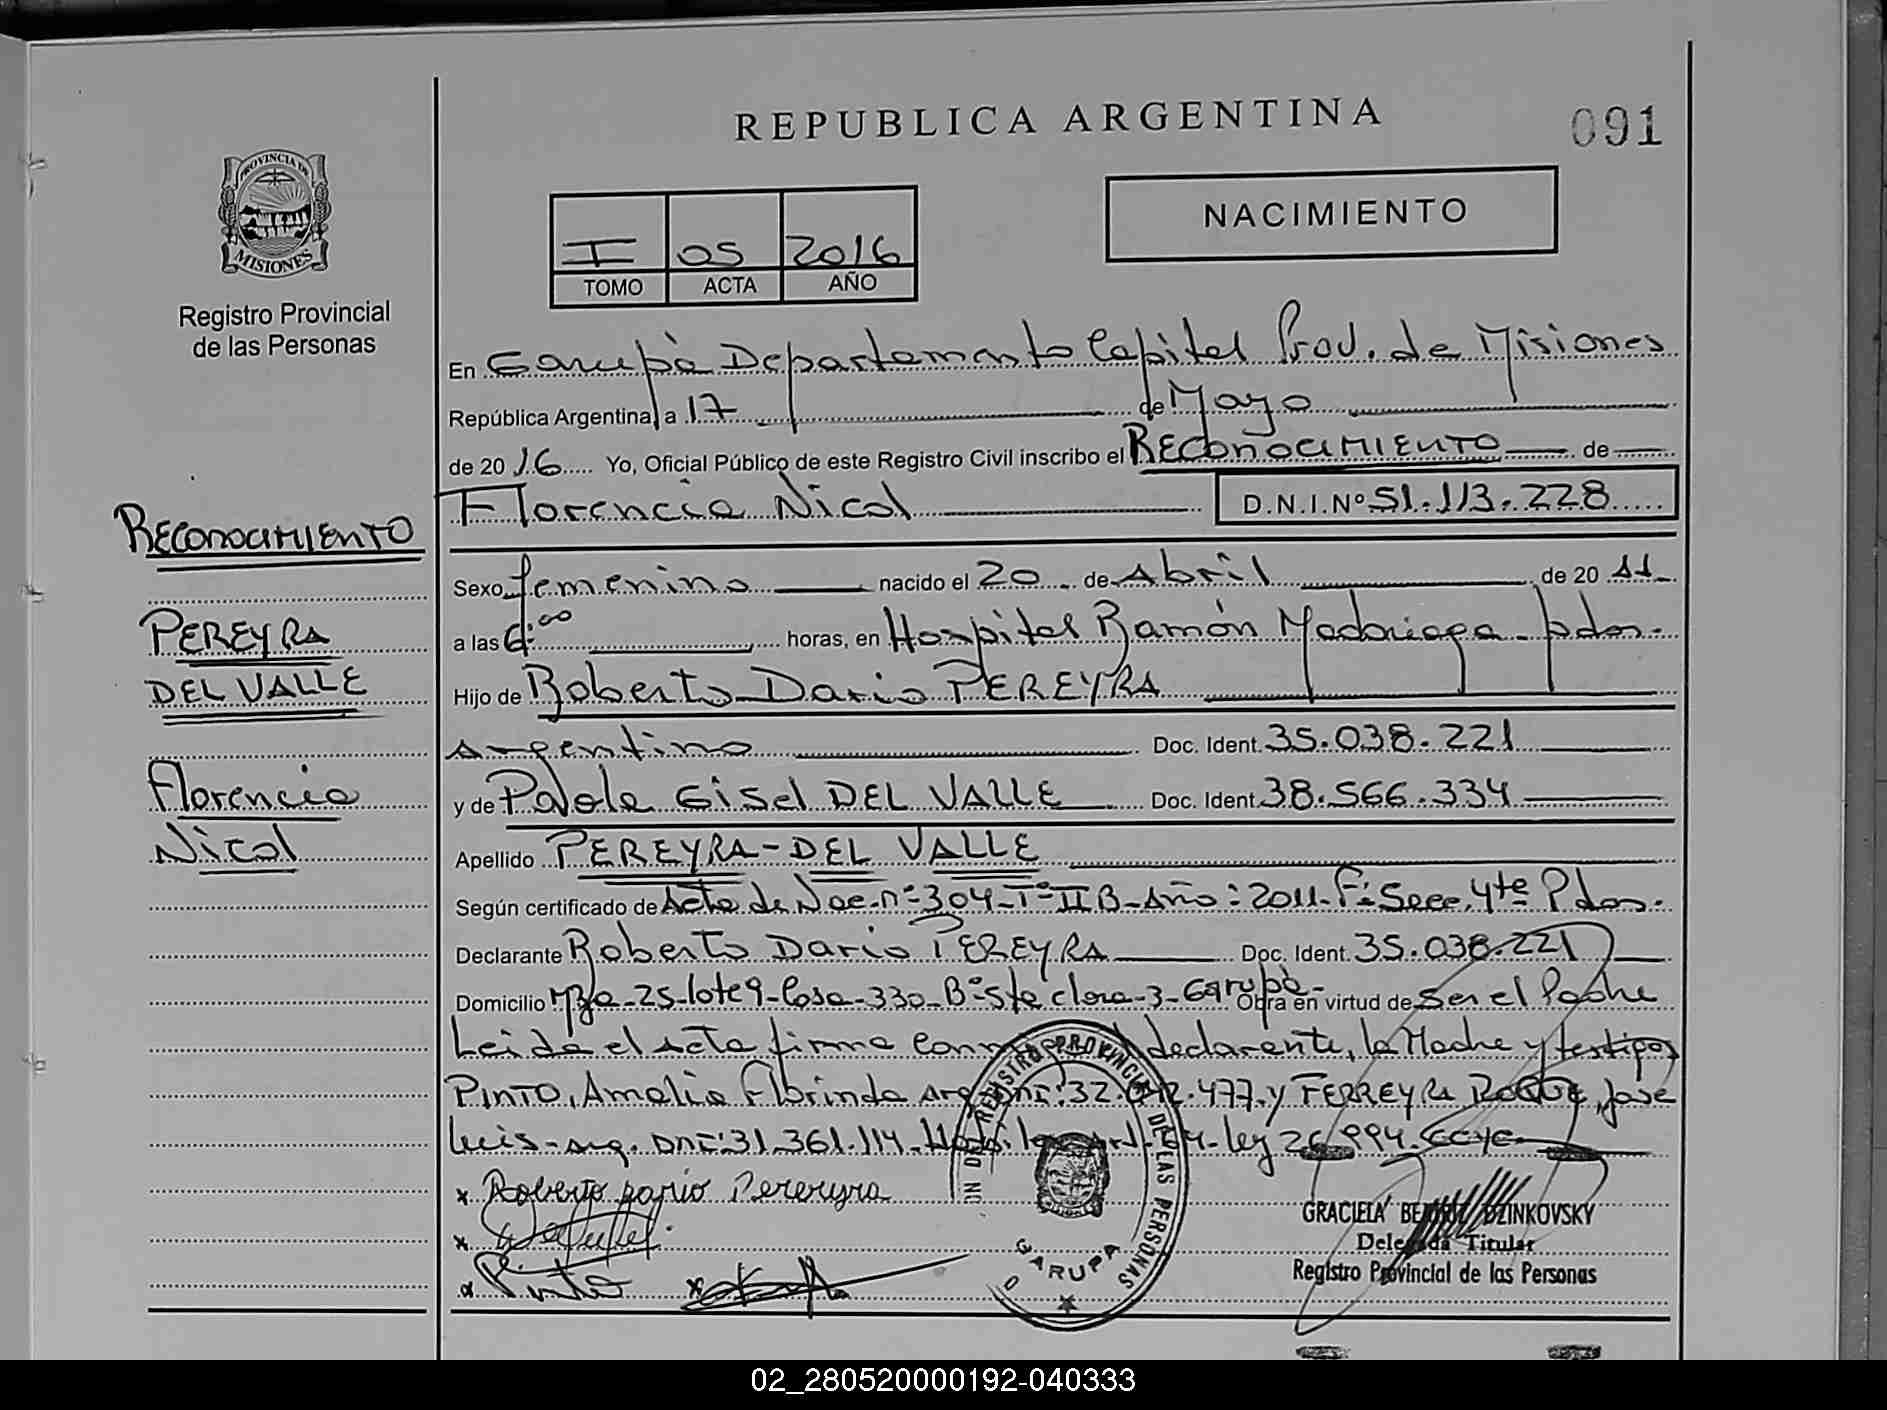 REPUBLICA ARGENTINA
091
PROVINCIA DE
MISIONES
Registro Provincial
de las Personas
I 05 2016
TOMO ACTA AÑO
NACIMIENTO
En Garupà Departamento Capital Prov. de Misiones
República Argentina, a 17 de Mayo
de 2016 Yo, Oficial Público de este Registro Civil inscribo el RECONOCIMIENTO de
Florencia Nicol D.N.I.Nº 51.113.228
Sexo femenino nacido el 20 de Abril de 2011
a las 6:00 horas, en Hospital Ramón Madariaga - Pdas.
Hijo de Roberto Dario PEREYRA
Argentino Doc. Ident. 35.038.221
y de Paola Gisel DEL VALLE Doc. Ident. 38.566.334
Apellido PEREYRA-DEL VALLE
Según certificado de Acta de Nac. nº 304-Tº II B-Año: 2011-Fº Secc. 4te Pdas.
Declarante Roberto Dario PEREYRA Doc. Ident. 35.038.221
Domicilio Mza-25-lote 9-Casa-330-Bº Sta clara-3-Garupà- Obra en virtud de ser el Padre
Leida el acta firma declarante, la Madre y testigos
PINTO, Amalia Florinda arg 477 y FERREYRA ROQUE, Jose
Luis-arg. DNI: 31.361.114 ley 26.994-CCYC-
x Roberto Dario Pereyra
x
x Pinto x
RECONOCIMIENTO
PEREYRA
DEL VALLE
Florencia
Nicol
REGISTRO PROVINCIAL DE LAS PERSONAS
GARUPA
GRACIELA DZINKOVSKY
Delegada Titular
Registro Provincial de las Personas
02_280520000192-040333